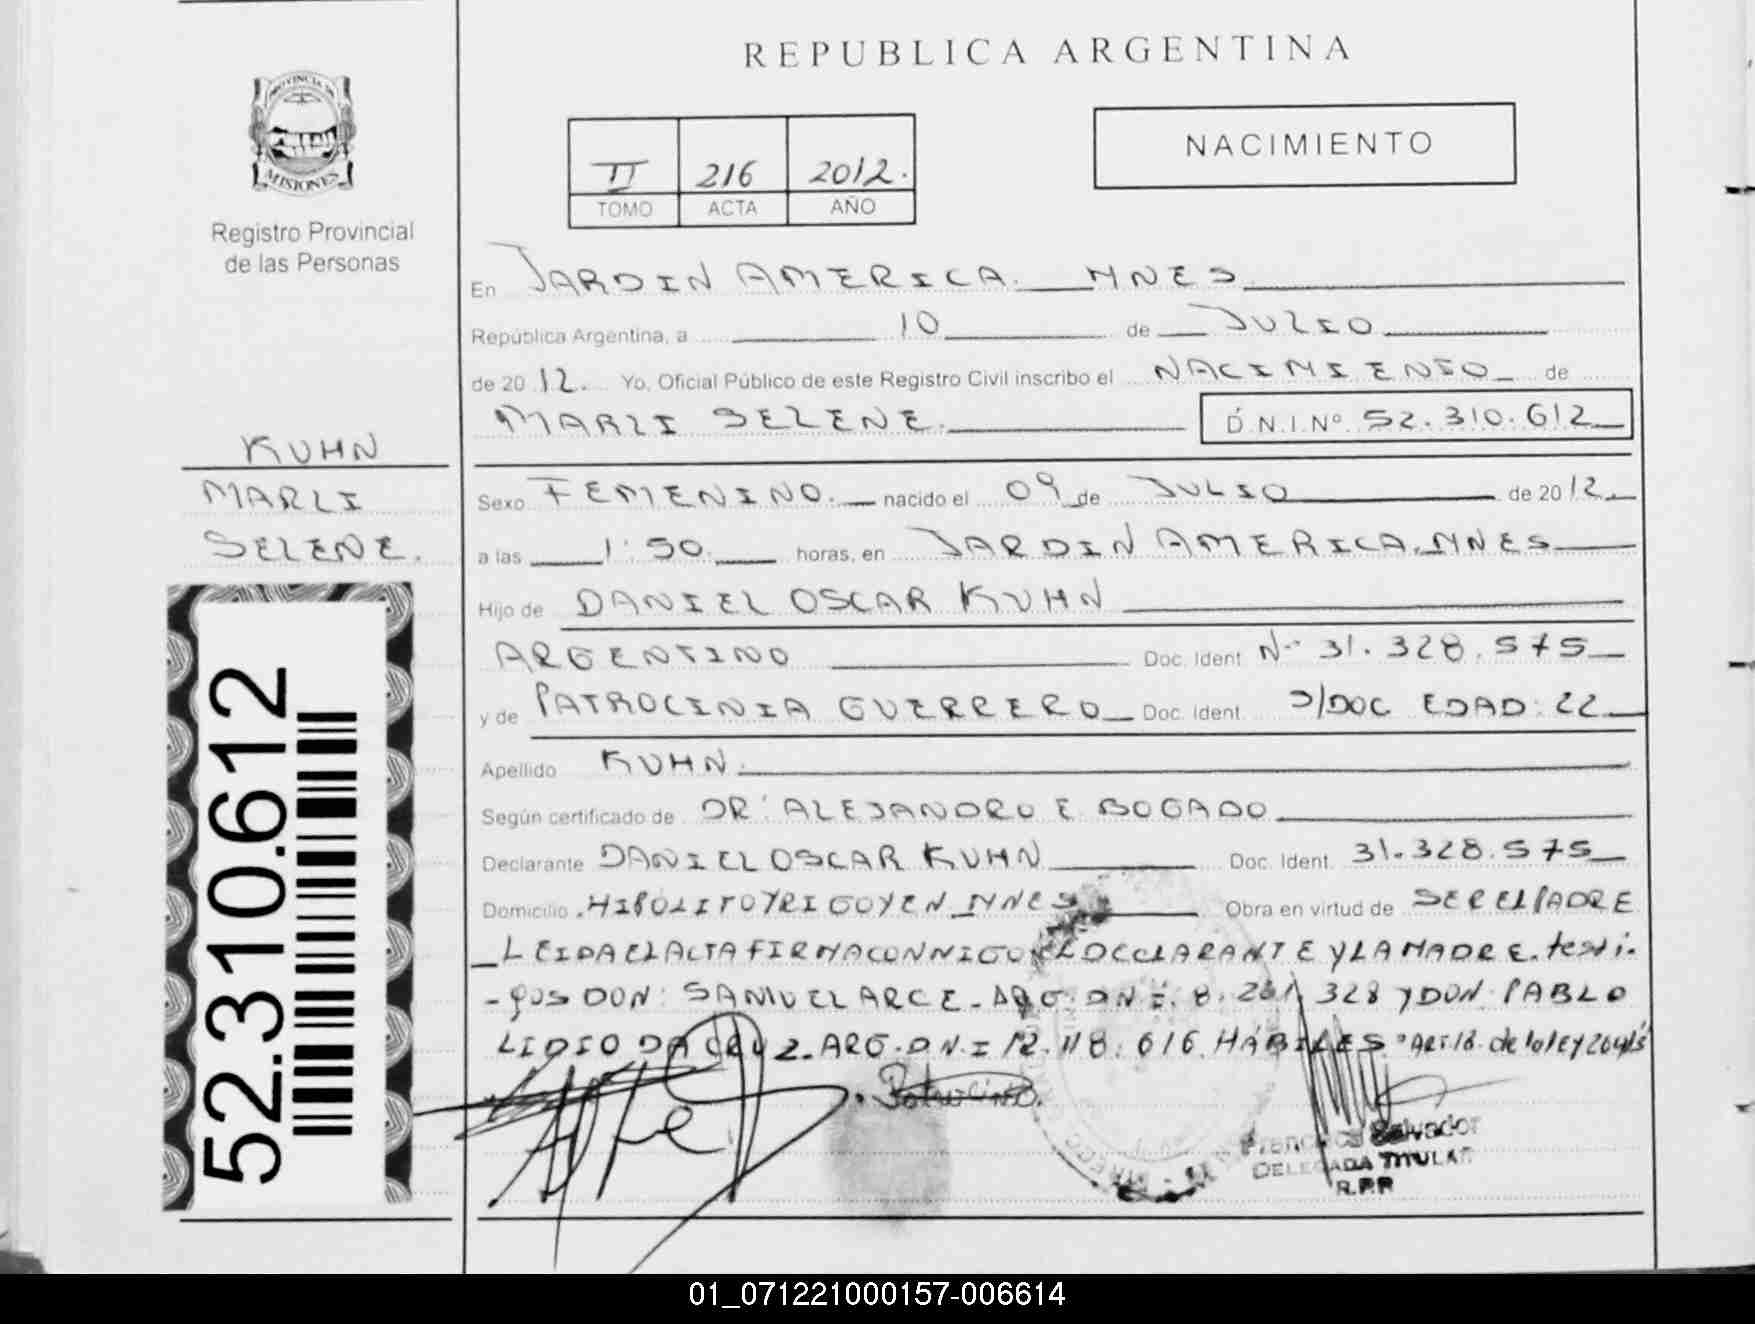 REPUBLICA ARGENTINA
PROVINCIA DE
MISIONES
Registro Provincial
de las Personas
II 216 2012.
TOMO ACTA AÑO
NACIMIENTO
En JARDIN AMERICA. MNES
República Argentina, a 10 de JULIO
de 2012. Yo, Oficial Público de este Registro Civil inscribo el NACIMIENTO de
MARLI SELENE. D.N.I.Nº 52.310.612
KUHN
MARLI
SELENE.
52.310.612
Sexo FEMENINO. nacido el 09 de JULIO de 2012
a las 1:50 horas, en JARDIN AMERICA, MNES
Hijo de DANIEL OSCAR KUHN
ARGENTINO Doc. Ident. Nº 31.328.575
y de PATROCINIA GUERRERO Doc. Ident. S/DOC EDAD: 22
Apellido KUHN.
Según certificado de DR. ALEJANDRO E BOGADO
Declarante DANIEL OSCAR KUHN Doc. Ident. 31.328.575
Domicilio HIPOLITO YRIGOYEN MNES Obra en virtud de SER EL PADRE
LEIDA EL ACTA FIRMA CONMIGO EL DECLARANTE Y LA MADRE. testi-
-gos DON: SAMUEL ARCE - ARG. DNI. 8. 328 y DON PABLO
LIDIO DA CRUZ. ARG. D.N.I 12.118.616 HABILES "Art 18. de la ley
Salvador
DELEGADA TITULAR
R.P.P
01_071221000157-006614